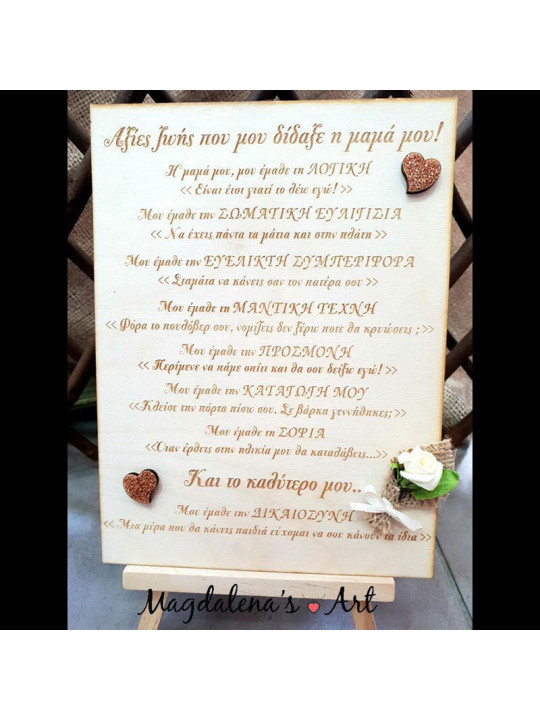 Αξίες ζωής που μου δίδαξε η μαμά μου!
Η μαμά μου, μου έμαθε τη ΛΟΓΙΚΗ
<< Είναι έτσι γιατί το λέω εγώ! >>
Μου έμαθε την ΣΩΜΑΤΙΚΗ ΕΥΛΙΓΙΣΙΑ
<< Να έχεις πάντα τα μάτια και στην πλάτη >>
Μου έμαθε την ΕΥΕΛΙΚΤΗ ΣΥΜΠΕΡΙΦΟΡΑ
<< Σταμάτα να κάνεις σαν τον πατέρα σου >>
Μου έμαθε τη ΜΑΝΤΙΚΗ ΤΕΧΝΗ
<< Φόρα το πουλόβερ σου, νομίζεις δεν ξέρω ποτε θα κρυώσεις ; >>
Μου έμαθε την ΠΡΟΣΜΟΝΗ
<< Περίμενε να πάμε σπίτι και θα σου δείξω εγώ! >>
Μου έμαθε την ΚΑΤΑΓΩΓΗ ΜΟΥ
<<Κλείσε την πόρτα πίσω σου. Σε βάρκα γεννήθηκες; >>
Μου έμαθε τη ΣΟΦΙΑ
<<Όταν έρθεις στην ηλικία μου θα καταλάβεις...>>
Και το καλύτερο μου..
Μου έμαθε την ΔΙΚΑΙΟΣΥΝΗ
<< Μια μέρα που θα κάνεις παιδιά εύχομαι να σου κάνουν τα ίδια >>
Magdalena's Art